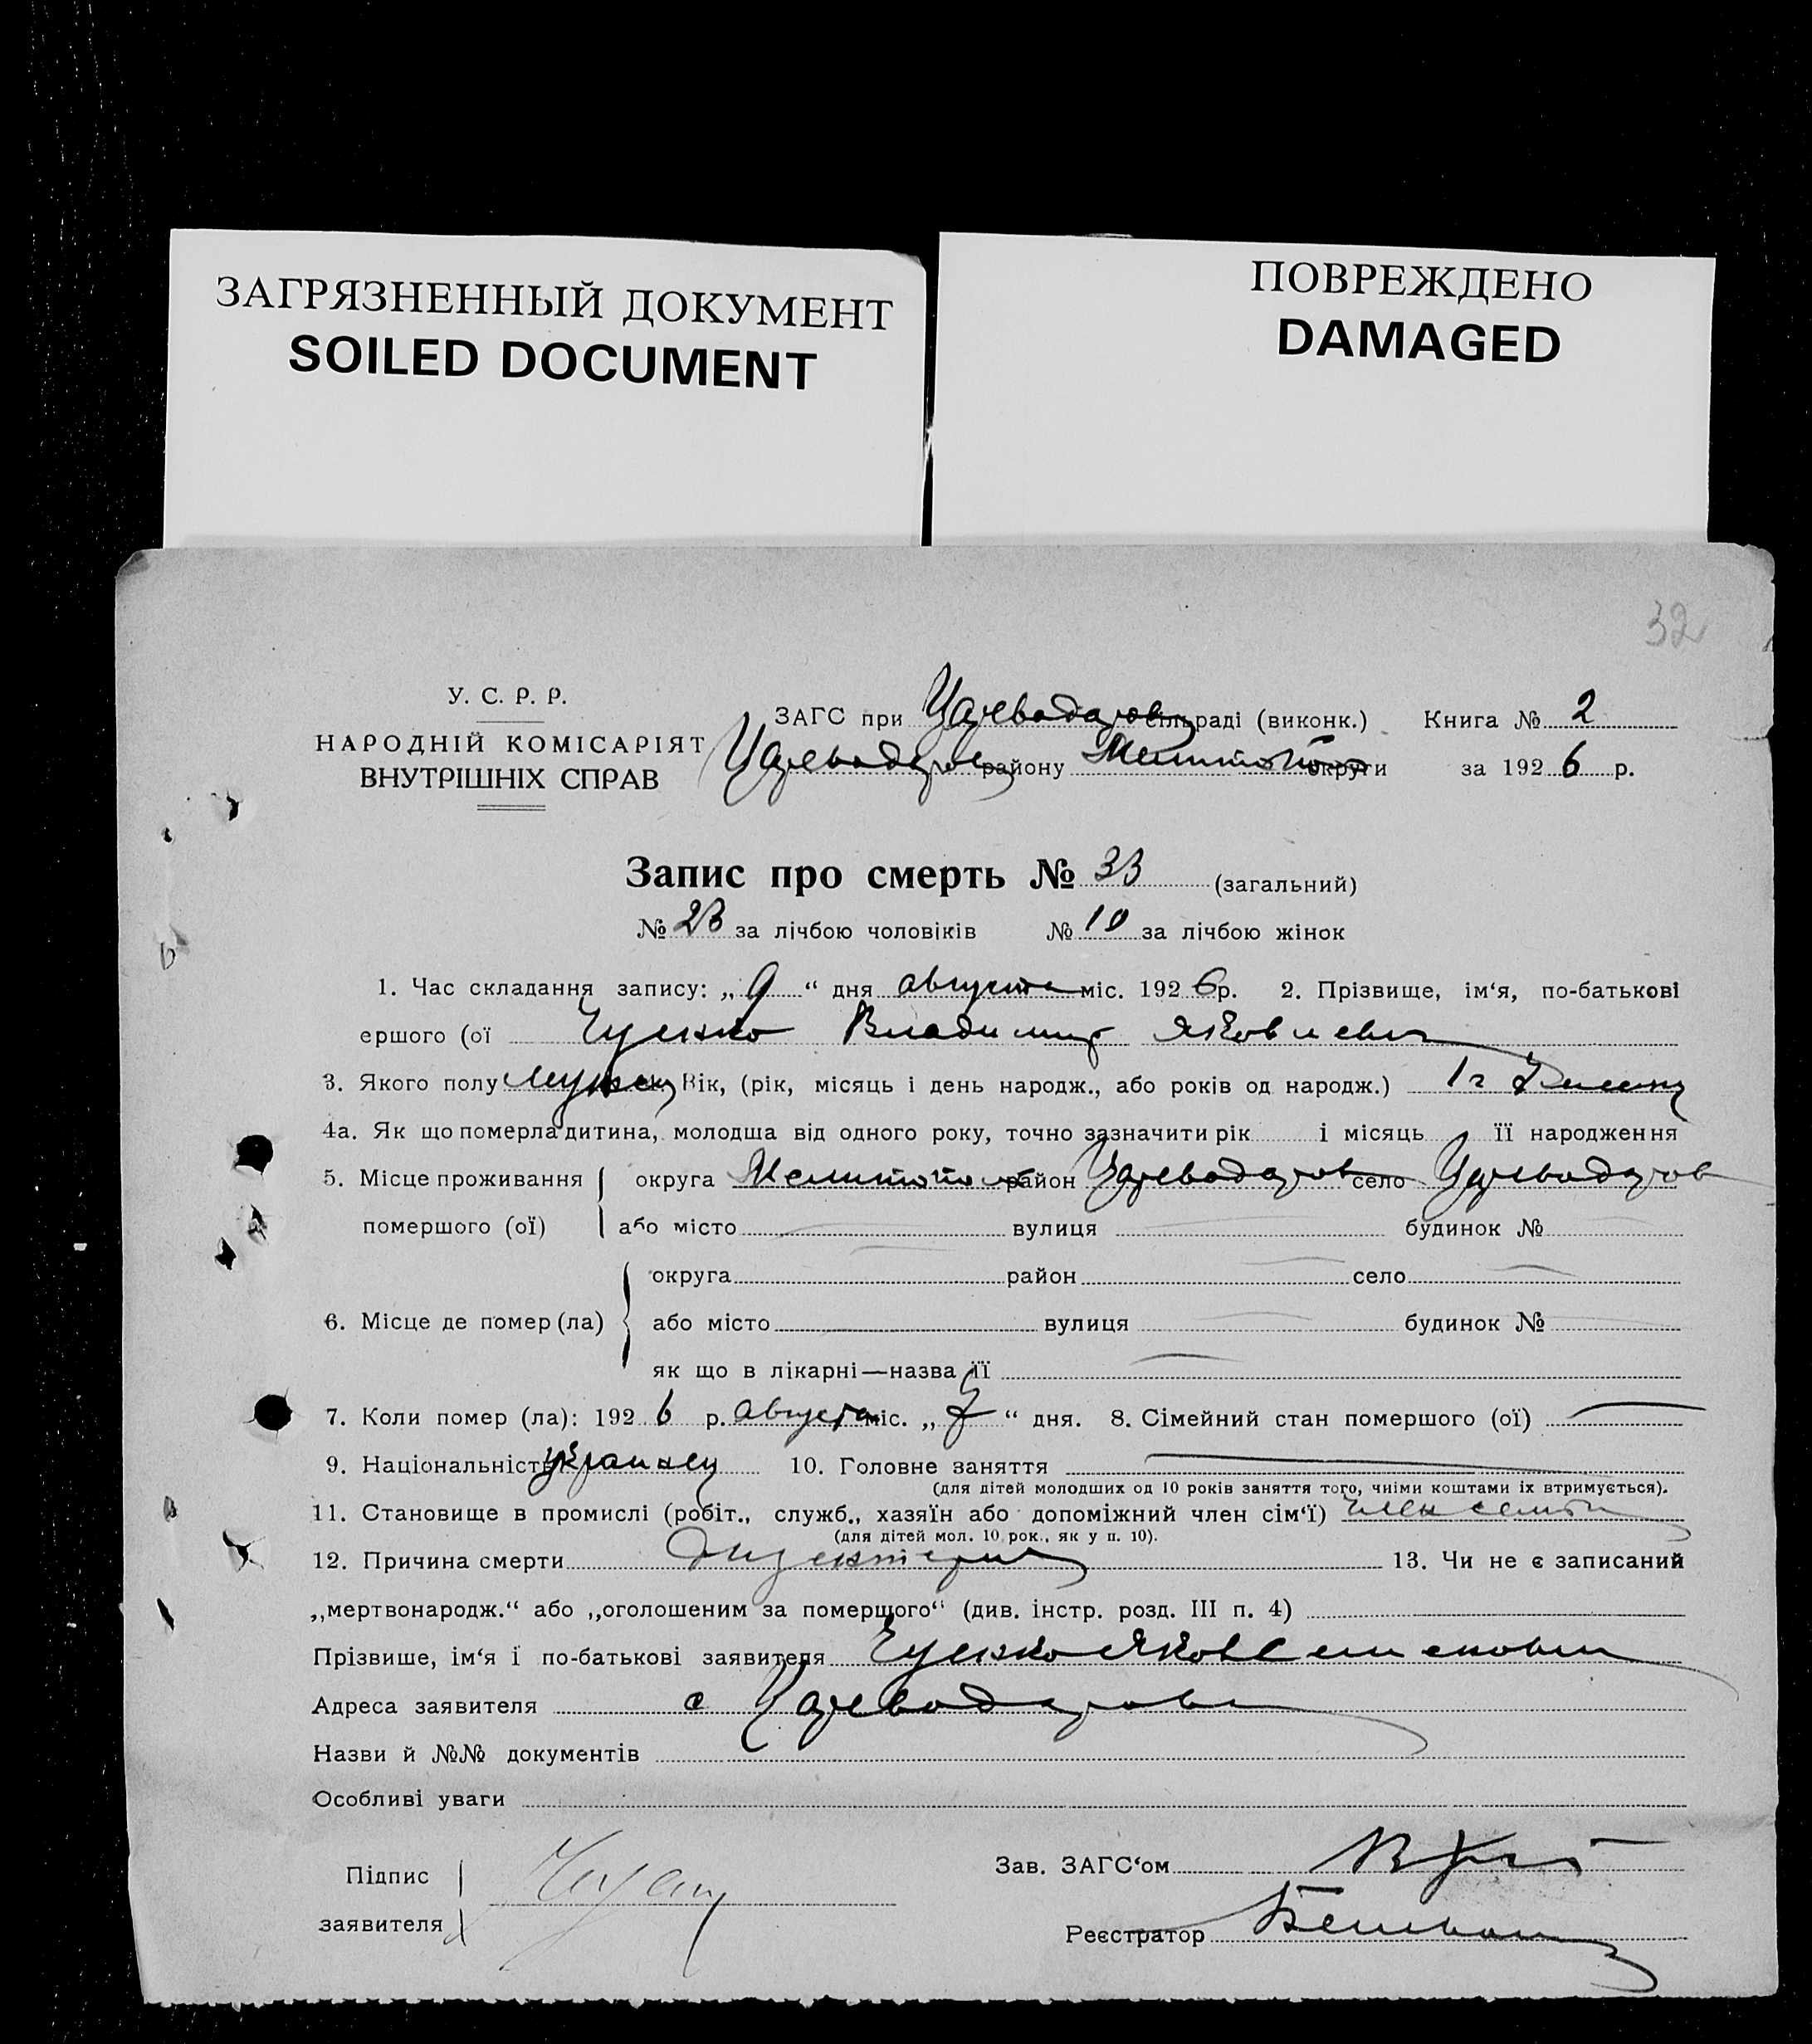 ЗАГРЯЗНЕННЫЙ ДОКУМЕНТ
SOILED DOCUMENT
ПОВРЕЖДЕНО
DAMAGED
32
У. С. Р. Р.
НАРОДНІЙ КОМІСАРІЯТ
ВНУТРІШНІХ СПРАВ
ЗАГС при Цареводаров сільраді (виконк.) Книга № 2
Цареводаров району Мелитоп округи за 1926 р.
Запис про смерть № 33 (загальний)
№ 23 за лічбою чоловіків № 10 за лічбою жінок
1. Час складання запису: „9“ дня августа міс. 1926р. 2. Прізвище, ім‘я, по-батькові
ершого (ої Владимир Яковлевич
3. Якого полу Вік, (рік, місяць і день народж., або років од народж.) 1 г
4а. Як що померла дитина, молодша від одного року, точно зазначити рік і місяць її народження
5. Місце проживання округа Мелитопол район Цареводаров село Цареводаров
помершого (ої) або місто вулиця будинок №
округа район село
6. Місце де помер (ла) або місто вулиця будинок №
як що в лікарні—назва її
7. Коли помер (ла): 1926 р. августа міс. „ “ дня. 8. Сімейний стан помершого (ої)
9. Національність украинец 10. Головне заняття
(для дітей молодших од 10 років заняття того, чиїми коштами їх втримується).
11. Становище в промислі (робіт., служб., хазяїн або допоміжний член сім‘ї) член семьи
(для дітей мол. 10 рок., як у п. 10).
12. Причина смерти Дизентерия 13. Чи не є записаний
„мертвонародж.“ або „оголошеним за померщого“ (див. інстр. розд. III п. 4)
Прізвише, ім‘я і по-батькові заявителя Яков
Адреса заявителя с Цареводаровка
Назви й №№ документів
Особливі уваги
Підпис
заявителя
Зав. ЗАГС‘ом
Реєстратор